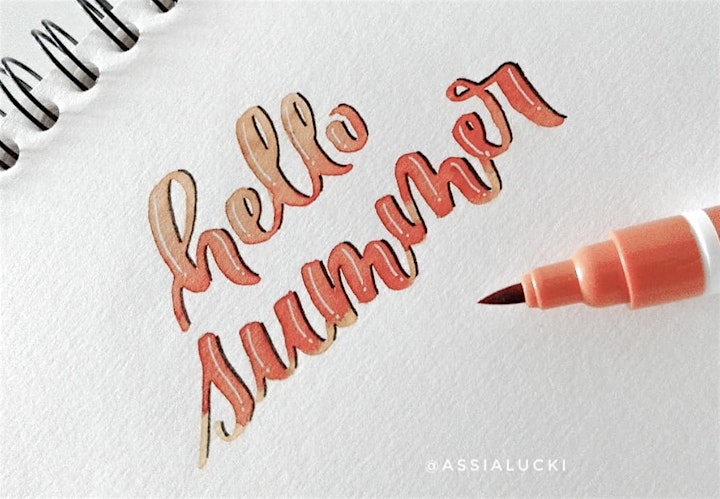 hello
summer
@ASSIALUCKI